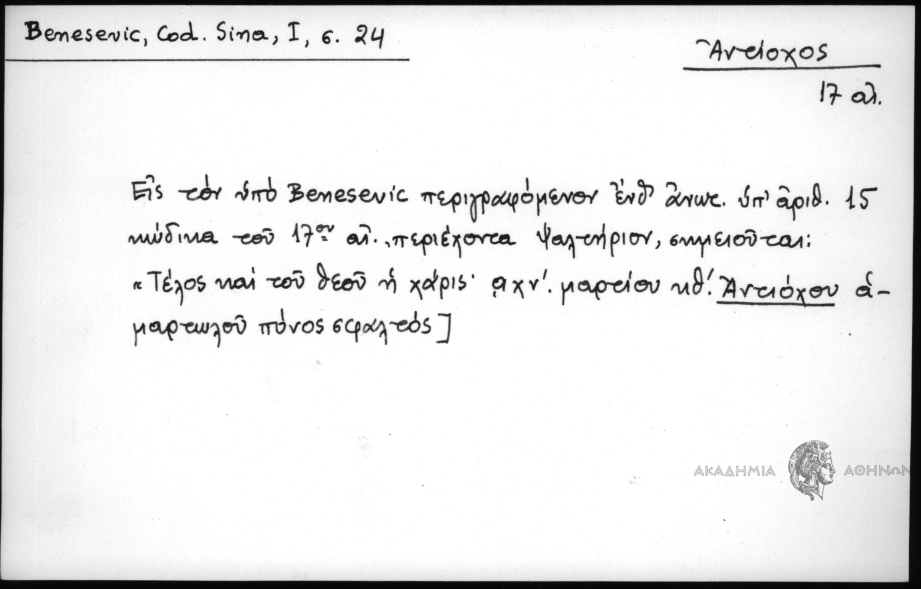 Benesevic, Cod. Sina, I, σ. 24
Ἀντίοχος
17 αἰ.
Εἰς τόν ὑπό Benesevic περιγραφόμενον ἔνθ' ἄνωτ. ὑπ' ἀριθ. 15
κώδικα τοῦ 17ου αἰ., περιέχοντα ψαλτήριον, σημειοῦται:
«Τέλος καί τοῦ θεοῦ ἡ χάρις· αχν'. μαρτίου κθ'. Ἀντιόχου ἁ-
μαρτωλοῦ πόνος σφαλτός]
ΑΚΑΔΗΜΙΑ ΑΘΗΝΩΝ